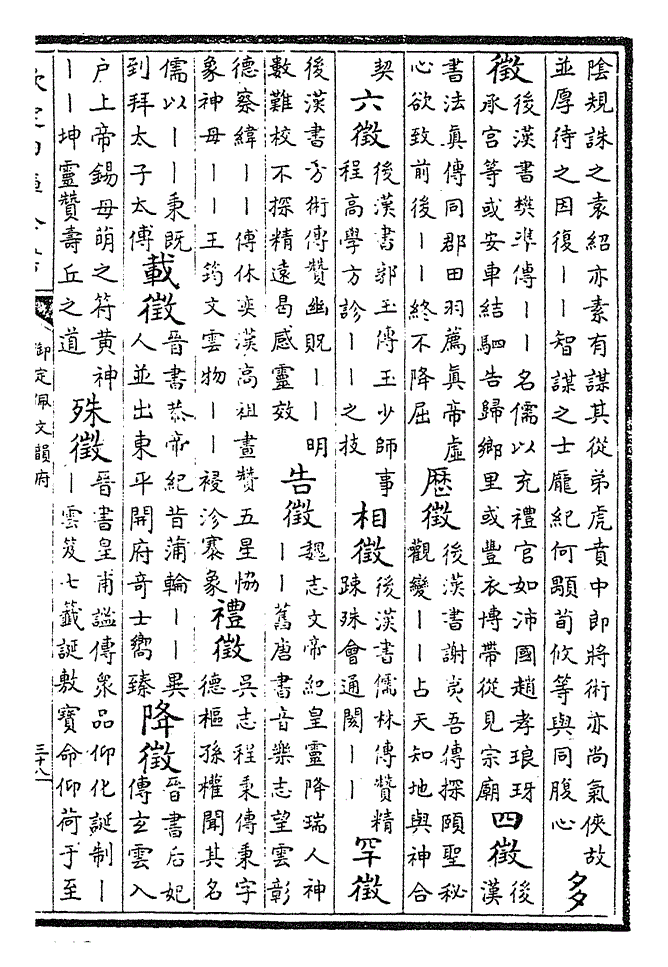 陰規誅之袁紹亦素有謀其從弟虎賁中郎將術亦尚氣俠故
並厚待之因復丨丨智謀之士龐紀何顒荀攸等與同腹心
多
徵
後漢書樊準傳丨丨名儒以充禮官如沛國趙孝琅玡
承宫等或安車結駟告歸鄉里或豐衣博帶從見宗廟
四徵
後
漢
書法真傳同郡田羽薦真帝虛
心欲致前後丨丨終不降屈
歷徵
後漢書謝夷吾傳探賾聖秘
觀變丨丨占天知地與神合
契
六徵
後漢書郭玉傳玉少師事
程高學方診丨丨之技
相徵
後漢書儒林傳贊精
疎殊會通閡丨丨
罕徵
後漢書方術傳贊幽貺丨丨明
數難校不探精遠曷感靈效
告徵
魏志文帝紀皇靈降瑞人神
丨丨舊唐書音樂志望雲彰
德察緯丨丨傅休奕漢高祖畫贊五星恊
象神母丨丨王筠文雲物丨丨祲沴寨象
禮徵
吳志程秉傳秉字
德樞孫權聞其名
儒以丨丨秉既
到拜太子太傅
載徵
晉書恭帝紀昔蒲輪丨丨異
人並出東平開府奇士嚮臻
降徵
晉書后妃
傳玄雲入
户上帝錫母萌之符黄神
丨丨坤靈贊壽丘之道
殊徵
晉書皇甫謐傳衆品仰化誕制丨
丨雲笈七籖誕敷寶命仰荷于至
欽定四庫全書
御定佩文韻府
三十八